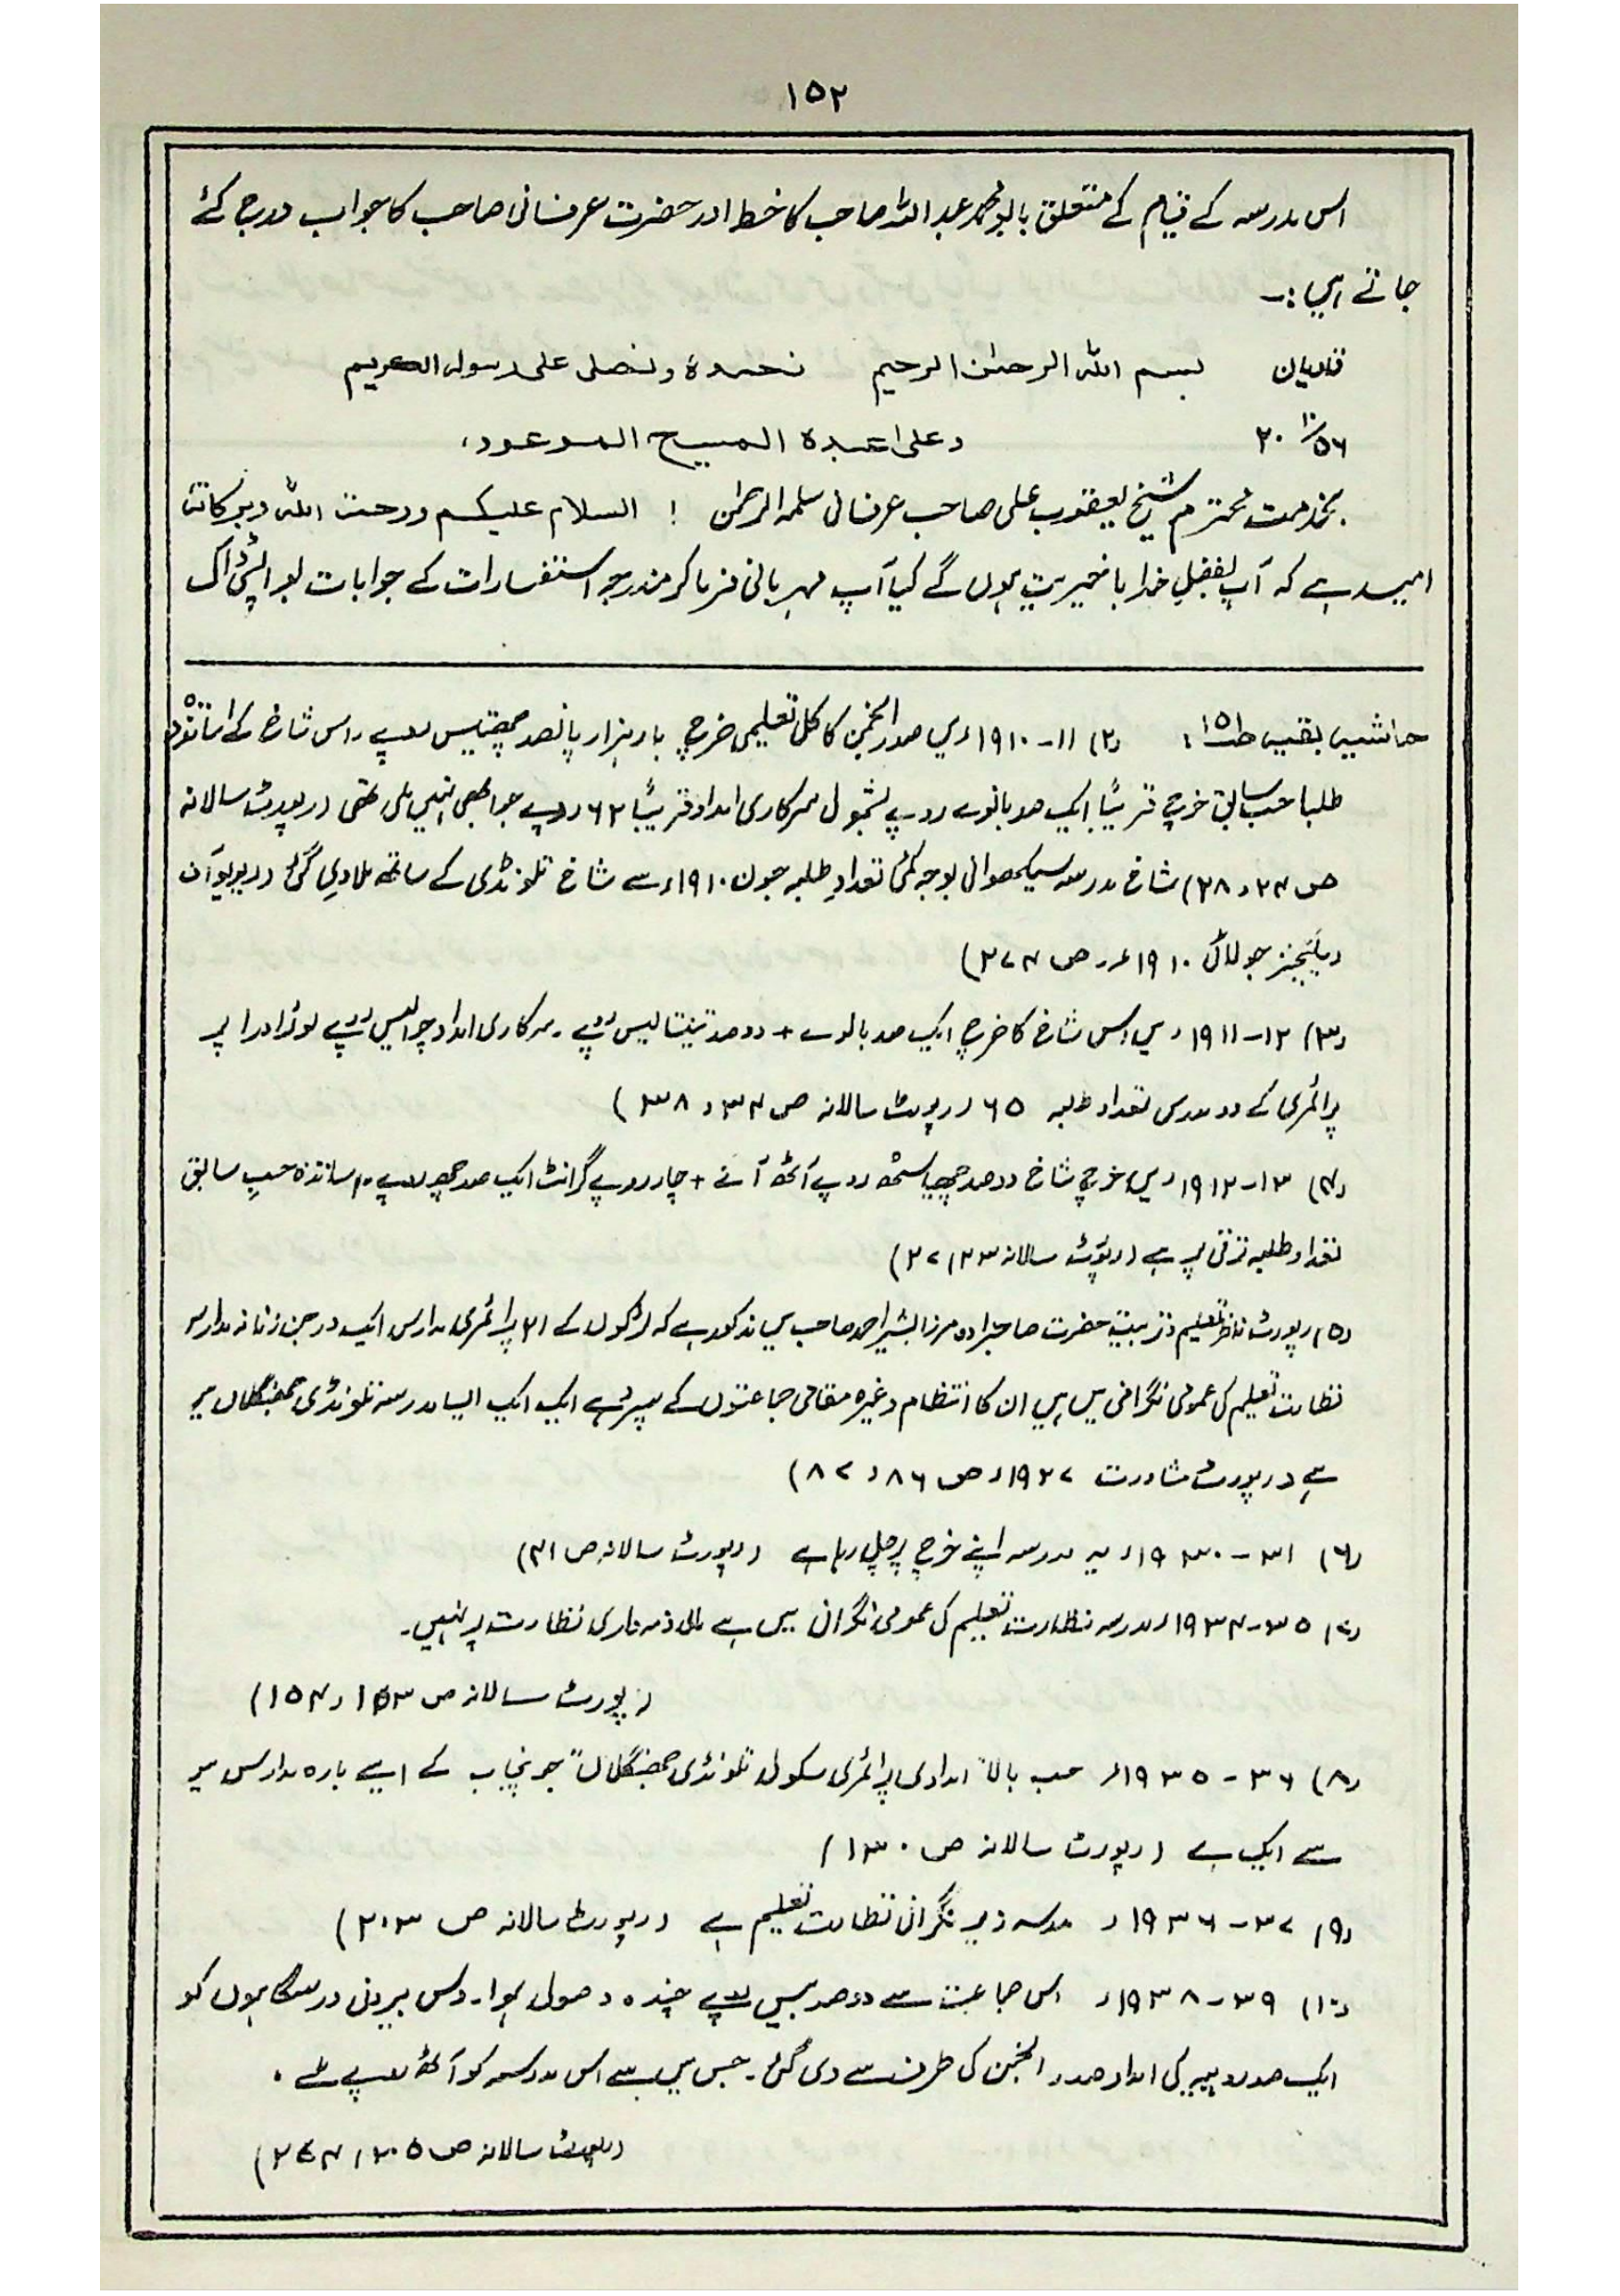 ۱۵۲
اس مدرسہ کے قیام کے متعلق بابو محمد عبداللہ صاحب کا خط اور حضرت عرفانی صاحب کا جواب درج کئے
جاتے ہیں :۔
قادیان بسم اللہ الرحمٰن الرحیم نحمدہ ونصلی علی رسولہ الکریم
۲۰/۱۰/۵۶ وعلیٰ عبدہ المسیح الموعود،
بخدمت محترم شیخ یعقوب علی صاحب عرفانی سلمہ الرحمٰن ! السلام علیکم ورحمۃ اللہ وبرکاتہ
امید ہے کہ آپ بفضلِ خدا باخیریت ہوں گے کیا آپ مہربانی فرما کر مندرجہ استفسارات کے جوابات بواپسی ڈاک
حاشیہ بقیہ ص۱۵۱ : (۲) ۱۱-۱۹۱۰ء میں صدر انجمن کا کل تعلیمی خرچ بارہ ہزار پانصد چھتیس روپے ۔ اس شاخ کے اساتذہ و
طلبا حسب سابق خرچ قریبًا ایک صد بانوے روپے بشمول سرکاری امداد قریبًا ۶۲ روپے جو ابھی نہیں ملی تھی (رپورٹ سالانہ
ص ۲۴ و ۲۸) شاخ مدرسہ سیکھوانی بوجہ کمی تعدادِ طلبہ جون ۱۹۱۰ء سے شاخ تلونڈی کے ساتھ ملا دی گئی (ریویو آف
ریلیجنز جولائی ۱۹۱۰ء ص ۲۷۴)
(۳) ۱۲-۱۹۱۱ء میں اس شاخ کا خرچ ایک صد بانوے + دو صد تینتالیس روپے ۔ سرکاری امداد چوالیس روپے لوئر اور اپر
پرائمری کے دو مدرس تعداد طلبہ ۶۵ (رپورٹ سالانہ ص ۳۴ و ۳۸ )
(۴) ۱۳-۱۹۱۲ء میں خرچ شاخ دو صد چھیاسٹھ روپے آٹھ آنے + چار روپے گرانٹ ایک صد چھ روپے ۔ اساتذہ حسبِ سابق
تعداد طلبہ ترقی پر ہے (رپورٹ سالانہ ۲۳ ، ۲۷)
(۵) رپورٹ ناظر تعلیم و تربیت حضرت صاحبزادہ مرزا بشیر احمد صاحب میں مذکور ہے کہ لڑکوں کے ۲۱ پرائمری مدارس ایک درجن زنانہ مدارس
نظامت تعلیم کی عمومی نگرانی میں ہیں ان کا انتظام وغیرہ مقامی جماعتوں کے سپرد ہے ایک ایک ایسا مدرسہ تلونڈی جھنگلاں میں
ہے (رپورٹ مشاورت ۱۹۲۷ء ص ۸۶ و ۸۷)
(۶) ۳۱-۱۹۳۰ء یہ مدرسہ اپنے خرچ پر چل رہا ہے (رپورٹ سالانہ ص ۴۱)
(۷) ۳۵-۱۹۳۴ء مدرسہ نظارت تعلیم کی عمومی نگرانی میں ہے مالی ذمہ داری نظارت پر نہیں۔
(رپورٹ سالانہ ص ۱۵۳ و ۱۵۴)
(۸) ۳۶-۱۹۳۵ء حسب بالا "امدادی پرائمری سکول تلونڈی جھنگلاں" جو پنجاب کے ایسے بارہ مدارس میں
سے ایک ہے (رپورٹ سالانہ ص ۱۳۰)
(۹) ۳۷-۱۹۳۶ء مدرسہ زیر نگرانی نظامت تعلیم ہے (رپورٹ سالانہ ص ۲۰۳)
(۱۰) ۳۹-۱۹۳۸ء اس جماعت سے دو صد بیس روپے چندہ وصول ہوا۔ دس بیرونی درسگاہوں کو
ایک صد روپیہ کی امداد صدر انجمن کی طرف سے دی گئی۔ جس میں سے اس مدرسہ کو آٹھ روپے ملے ۔
(رپورٹ سالانہ ص ۲۰۵ ، ۲۷۴)